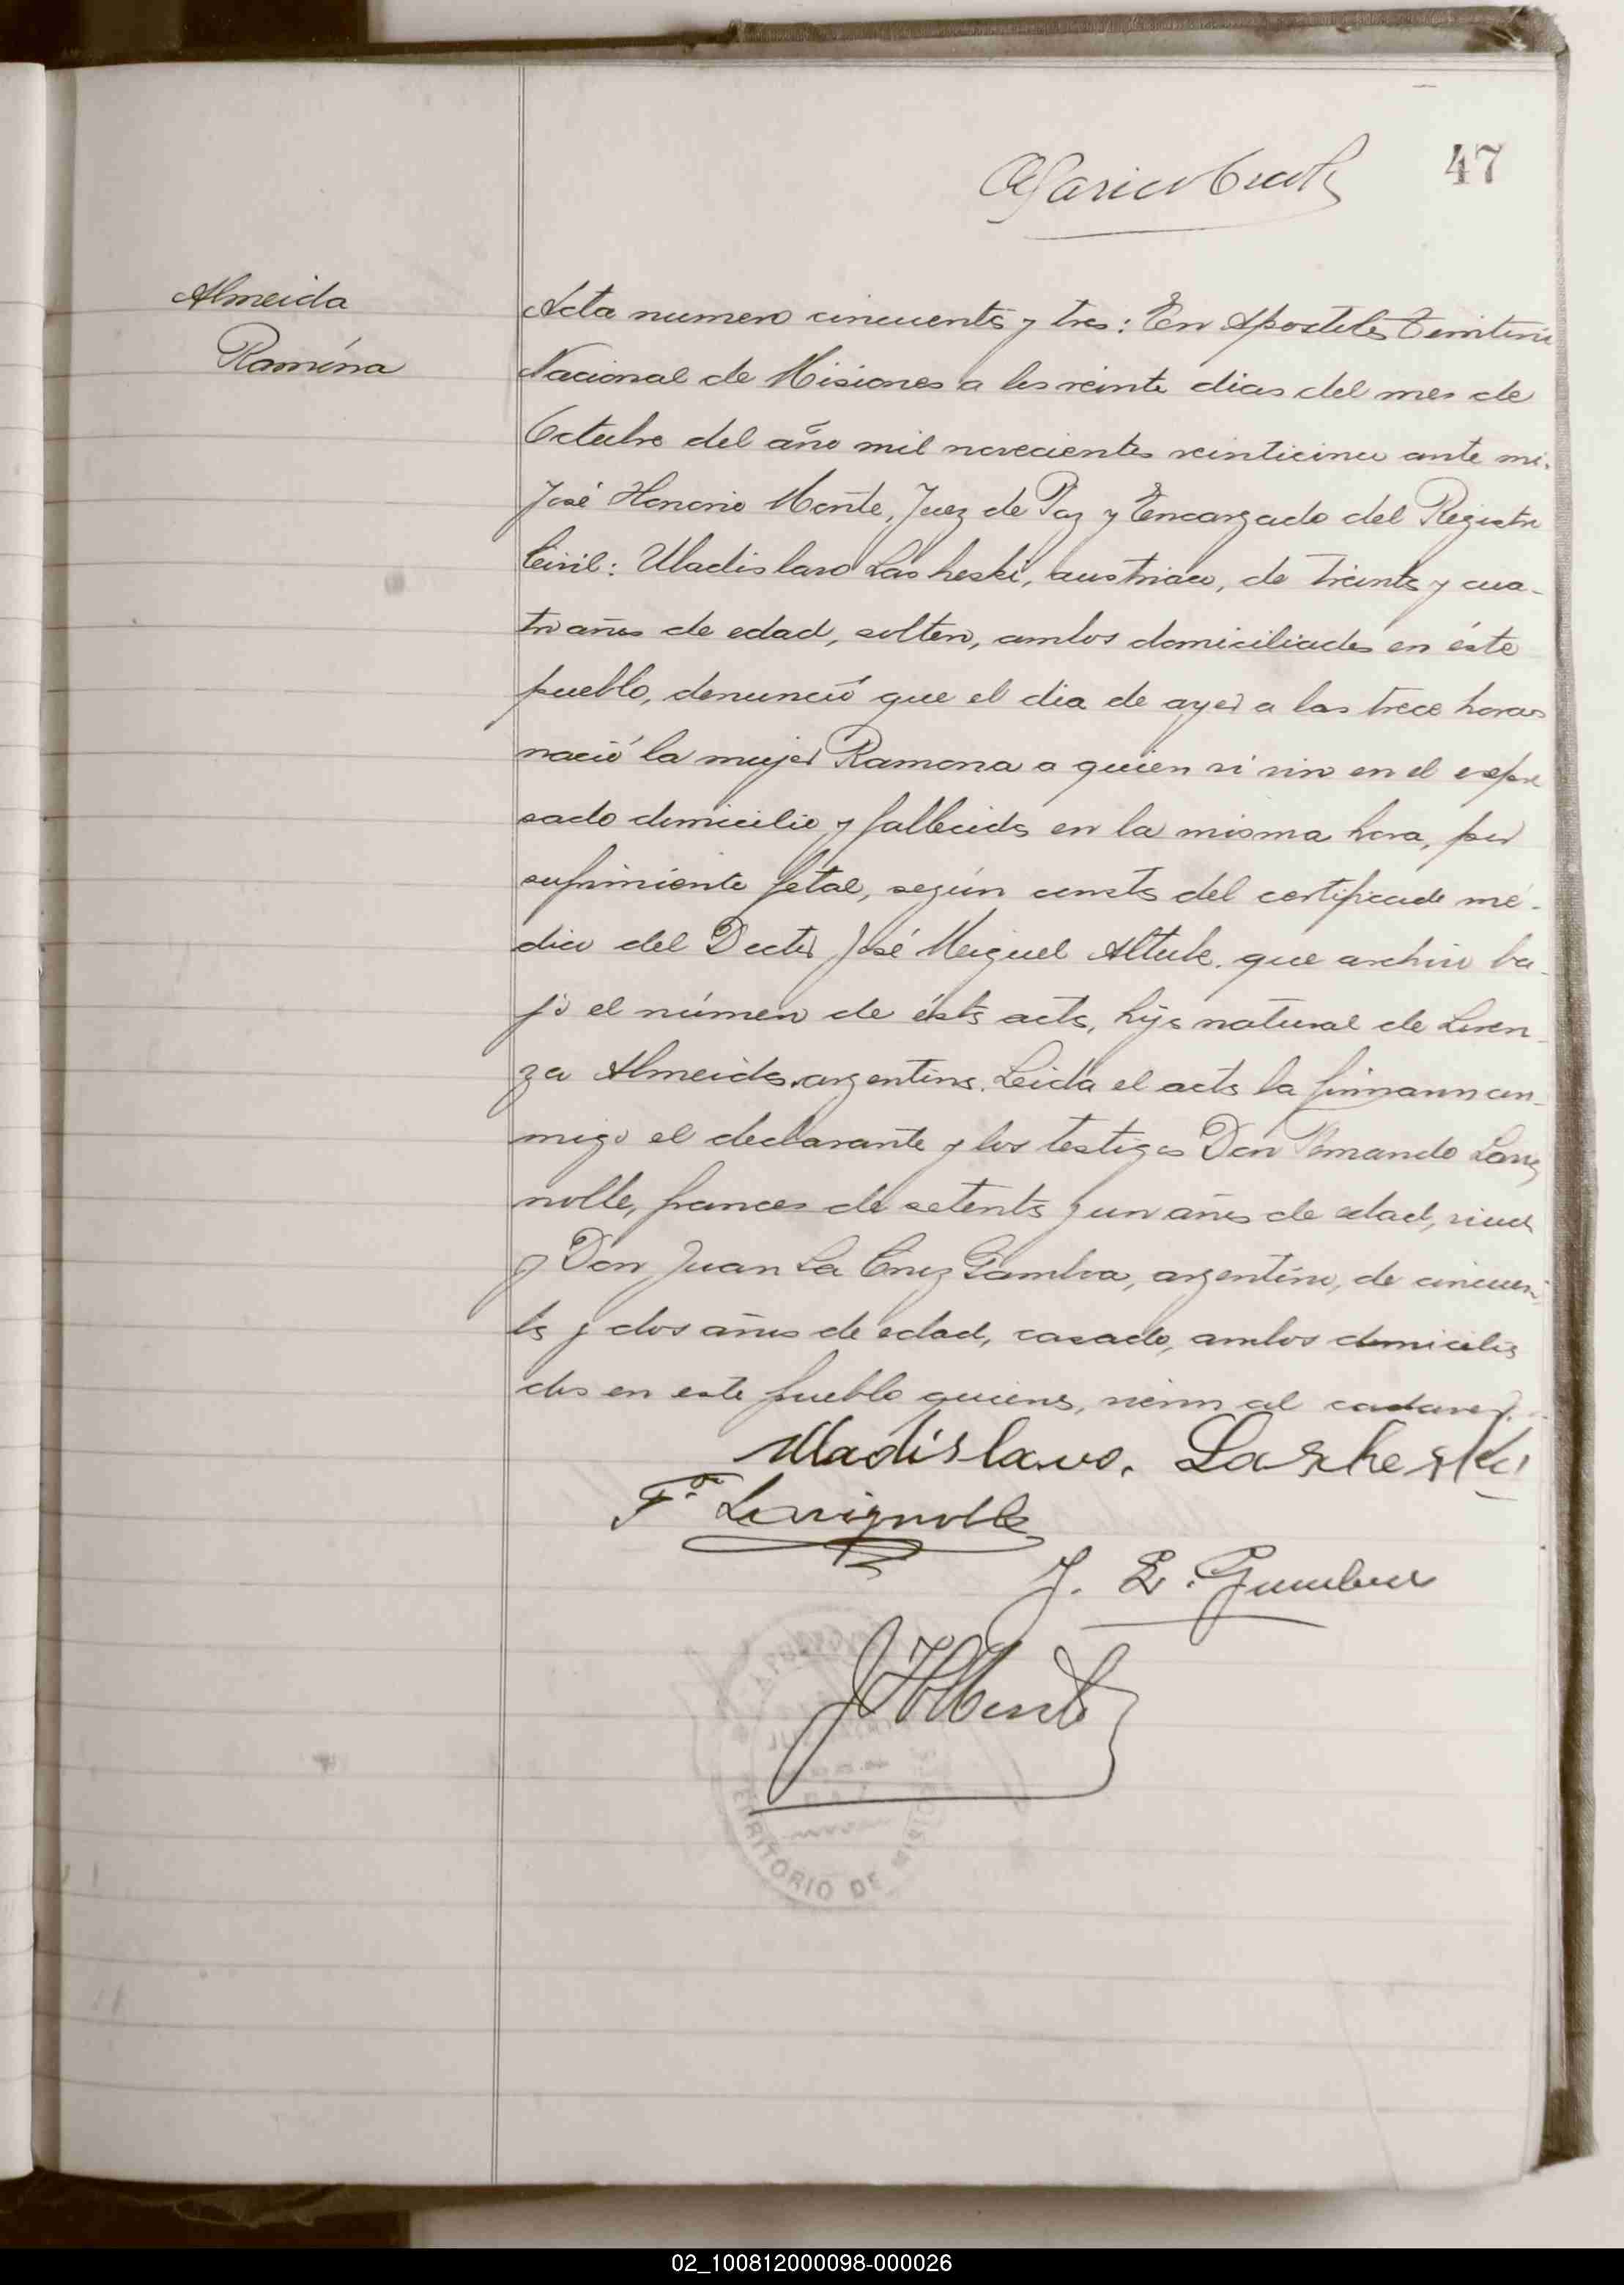 47
Almeida
Ramóna
Acta numero cincuenta y tres: En Apostoles Territorio
Nacional de Misiones a los veinte dias del mes de
Octubre del año mil novecientos veinticinco ante mi.
José Honorio Monte, Juez de Paz y Encargado del Registro
Civil: Uladislavo Lasheski, austriaco, de treinta y cua-
tro años de edad, soltero, ambos domiciliados en éste
pueblo, denunció que el dia de ayer a las trece horas
nació la mujer Ramona a quien vi vivo en el expre
sado domicilio y fallecida en la misma hora, por
sufrimiento fetal, según consta del certificado mé-
dico del Doctor José Meiguel Altube. que archivo ba-
jo el número de ésta acta, hija natural de Loren-
za Almeida, argentina. Leida el acta la firmaron con-
migo el declarante y los testigos Don Fernando Lavig
nolle, frances de setenta y un años de edad, viudo
y Don Juan La Cruz Gamboa, argentino, de cincuen-
ta y dos años de edad, casado, ambos domicilia
dos en este pueblo quienes, vieron al cadaver.
Uladislavo. Lasheski
F.do Lavignolle
J. L. Gamboa
JHMonte
TERRITORIO DE MISIONES
02_100812000098-000026